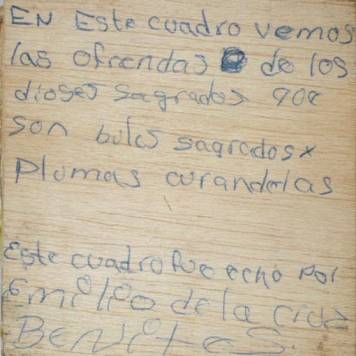 EN Este cuadro vemos
las ofrendas de los
dioses sagrados que
son bules sagrados x
Plumas curandolas
Este cuadro fue echo Por
Emilio de la cruz
Benites